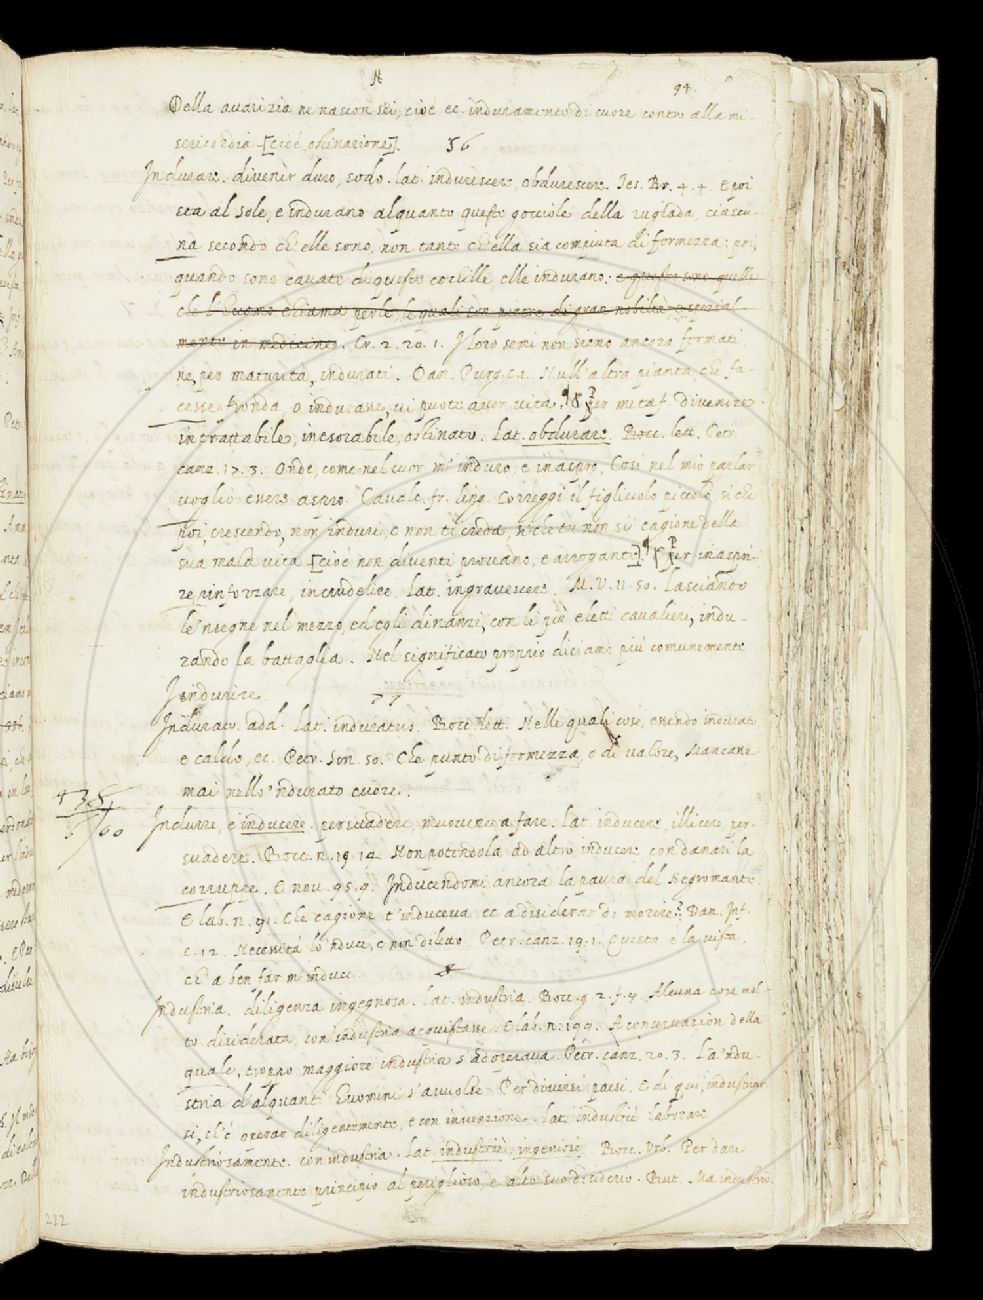 N 94
Della avarizia ne nascon sei, cioè ec. induramento di cuore contro alla mi-
sericordia [cioè, ostinazione]. 56
Indurare. divenir duro, sodo. lat. indurescere, obdurescere. Tes. Br. 4. 4. E poi
sta al sole, e indurano alquanto queste gocciole della rugiada, ciascu-
na secondo ch'elle sono, non tanto ch'ella sia compiuta di fermezza: poi,
quando sono cavate di queste cochille, elle indurano: e queste sono quelle
che l'huomo chiama perle, le quali son pietre di gran nobiltà, e spezial
mente in medicine. Cr. 2. 20. 1. I loro semi non sieno ancora formati
ne, per maturità, indurati. Dan. Purg. c. 1. Null'altra pianta, che fa-
cesse fronda, o indurasse, vi puote aver vita. § Per metaf. Divenire
intrattabile, inesorabile, ostinato. Lat. obdurare. Bocc. lett. Petr.
canz. 17. 3. Onde, come nel cuor m'induro, e inaspro, Così nel mio parlar
voglio esser aspro. Cavalc. fr. ling. Correggi il figliuolo piccolo, sì che
poi, crescendo, non induri, e non ti creda, sì che tu non sii cagione della
sua mala vita [cioè non diventi provano, e arrogante] § Per inaspri
re, rinforzare, incrudelire. Lat. ingravescere. M. V. 11. 50. Lasciando
le 'nsegne nel mezzo, ed egli dinanzi, con li più eletti cavalieri, indu-
rando la battaglia. Nel significato proprio diciamo più comunemente
Indurire.
Indurato. add. lat. induratus. Bocc. lett. Nelle quali cose, essendo indurato
e calcato, ec. Petr. Son. 50. Che punto di fermezza, o di valore, Mancasse
mai nello 'ndurato cuore.
Indurre, e inducere. persuadere, muovere a fare. Lat. inducere, illicere, per-
suadere. Bocc. n. 19. 14. Non potendola ad altro inducere con danari la
corruppe. E nov. 95. 9. Inducendomi ancora la paura del Negromante
E lab. n. 91. Che cagione t'induceva ec. a disiderar di morire? Dan. Inf.
c. 12. Necessità lo 'nduce, e non diletto. Petr. canz. 19. 1. Questa è la vista,
ch'a ben far m'induce.
Industria. diligenza ingegnosa. lat. industria. Bocc. g. 2. f. 4. Alcuna cosa mol-
to disiderata, con industria acquistasse. E lab. n. 199. A conservazion della
quale, troppo maggiore industria s'adoperava. Petr. canz. 20. 3. La 'ndu-
stria d'alquanti huomini s'avvolse Per diversi paesi. E di qui, industriar
si, ch'è operar diligentemente, e con invenzione. lat. industriè laborare
Industriosamente. con industria. Lat. industriè, ingeniosè. Bocc. Vrb. Per dare
industriosamente principio al periglioso, e alto suo disiderio. But. Ma industrio
222